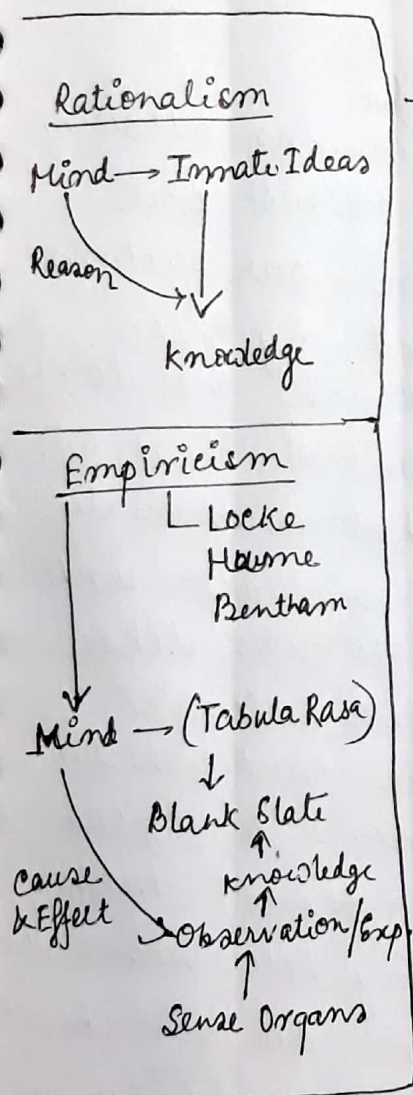 Rationalism
Mind → Innate Ideas
Reason
Knowledge
Empiricism
Locke
Houme
Bentham
Mind → (Tabula Rasa)
Blank Slate
Knowledge
Cause
& Effect
Observation/Exp
Sense Organs